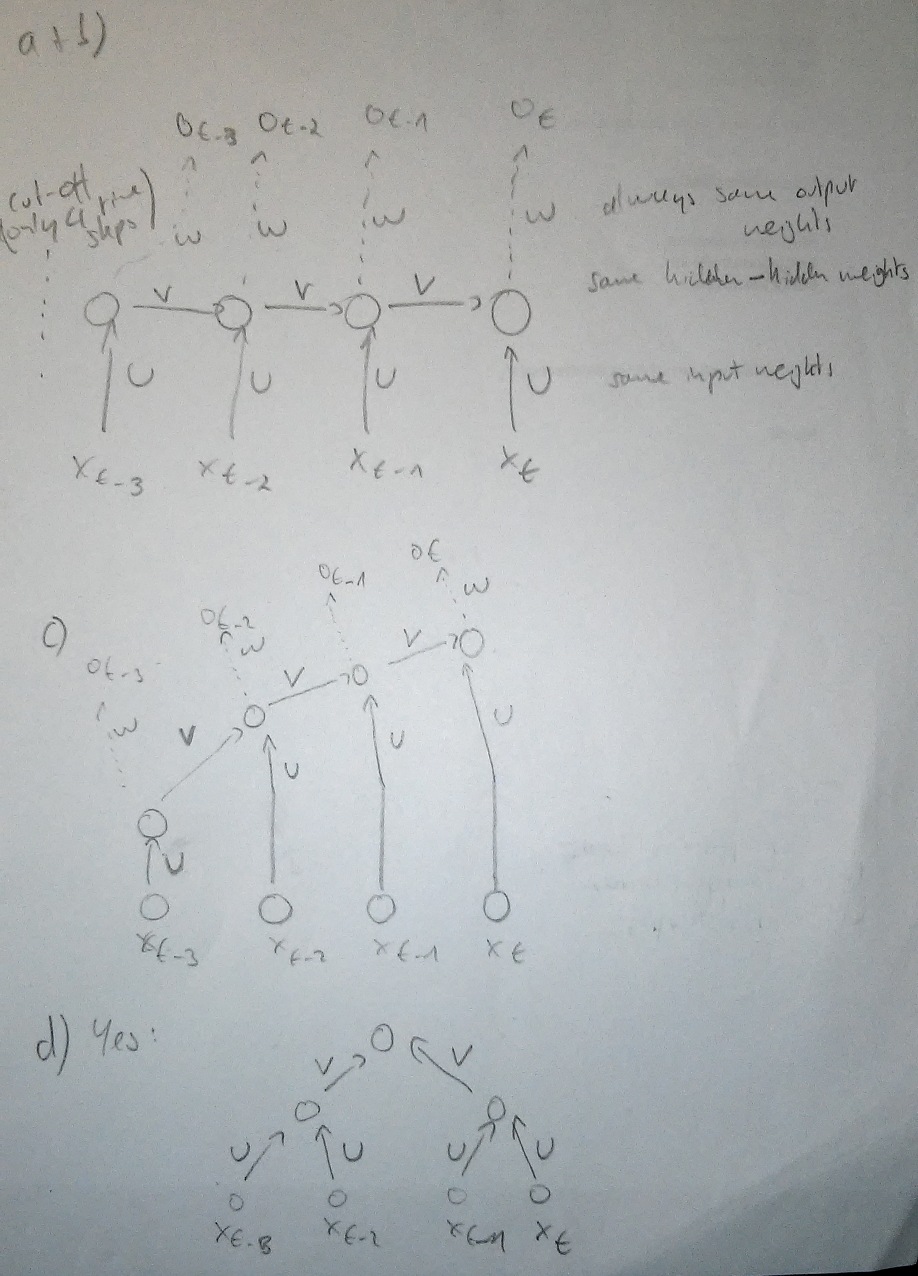 a + b)
O t-3 O t-2 O t-1 O t
(cut-off time)
(only 4 steps)
w w w w
always same output
weights
same hidden-hidden weights
V V V
U U U U
same input weights
X t-3 X t-2 X t-1 X t
c)
O t
O t-1 w
O t-2
w
O t-3
w
V V V
U U U U
X t-3 X t-2 X t-1 X t
d) Yes:
V V
U U U U
X t-3 X t-2 X t-1 X t